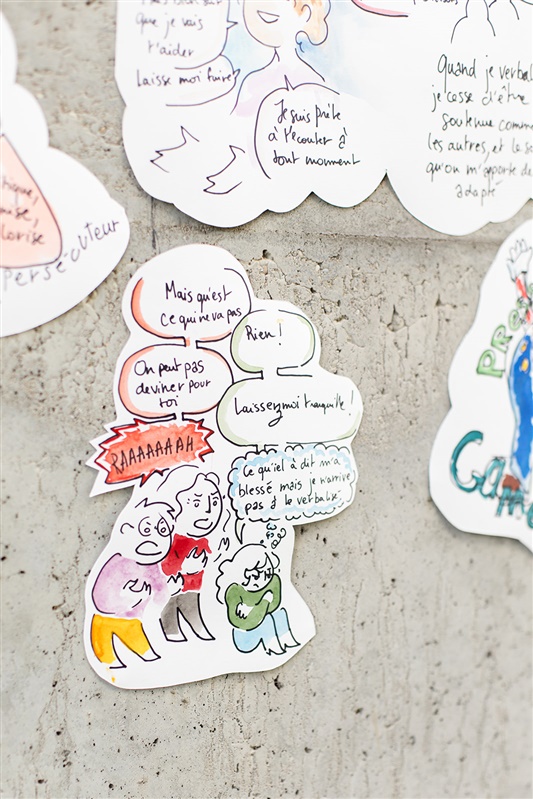 que je vais
t'aider
Laisse moi faire
Je suis prête
à t'écouter à
tout moment
Quand je verbal
je cesse d'être
soutenue comme
les autres, et le
qu'on m'apporte
adapté
Persécuteur
Mais qu'est
ce qui ne va pas
Rien !
On peut pas
deviner pour
toi
Laissez moi tranquille !
RAAAAAAAH
Ce qu'iel à dit m'a
blessé mais je n'arrive
pas à le verbalisé